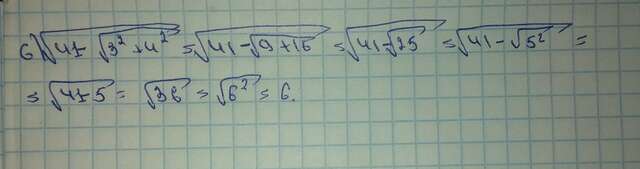 б) √(41-√(3²+4²)) = √(41-√(9+16)) = √(41-√25) = √(41-√5²) =
= √(41-5) = √36 = √6² = 6.